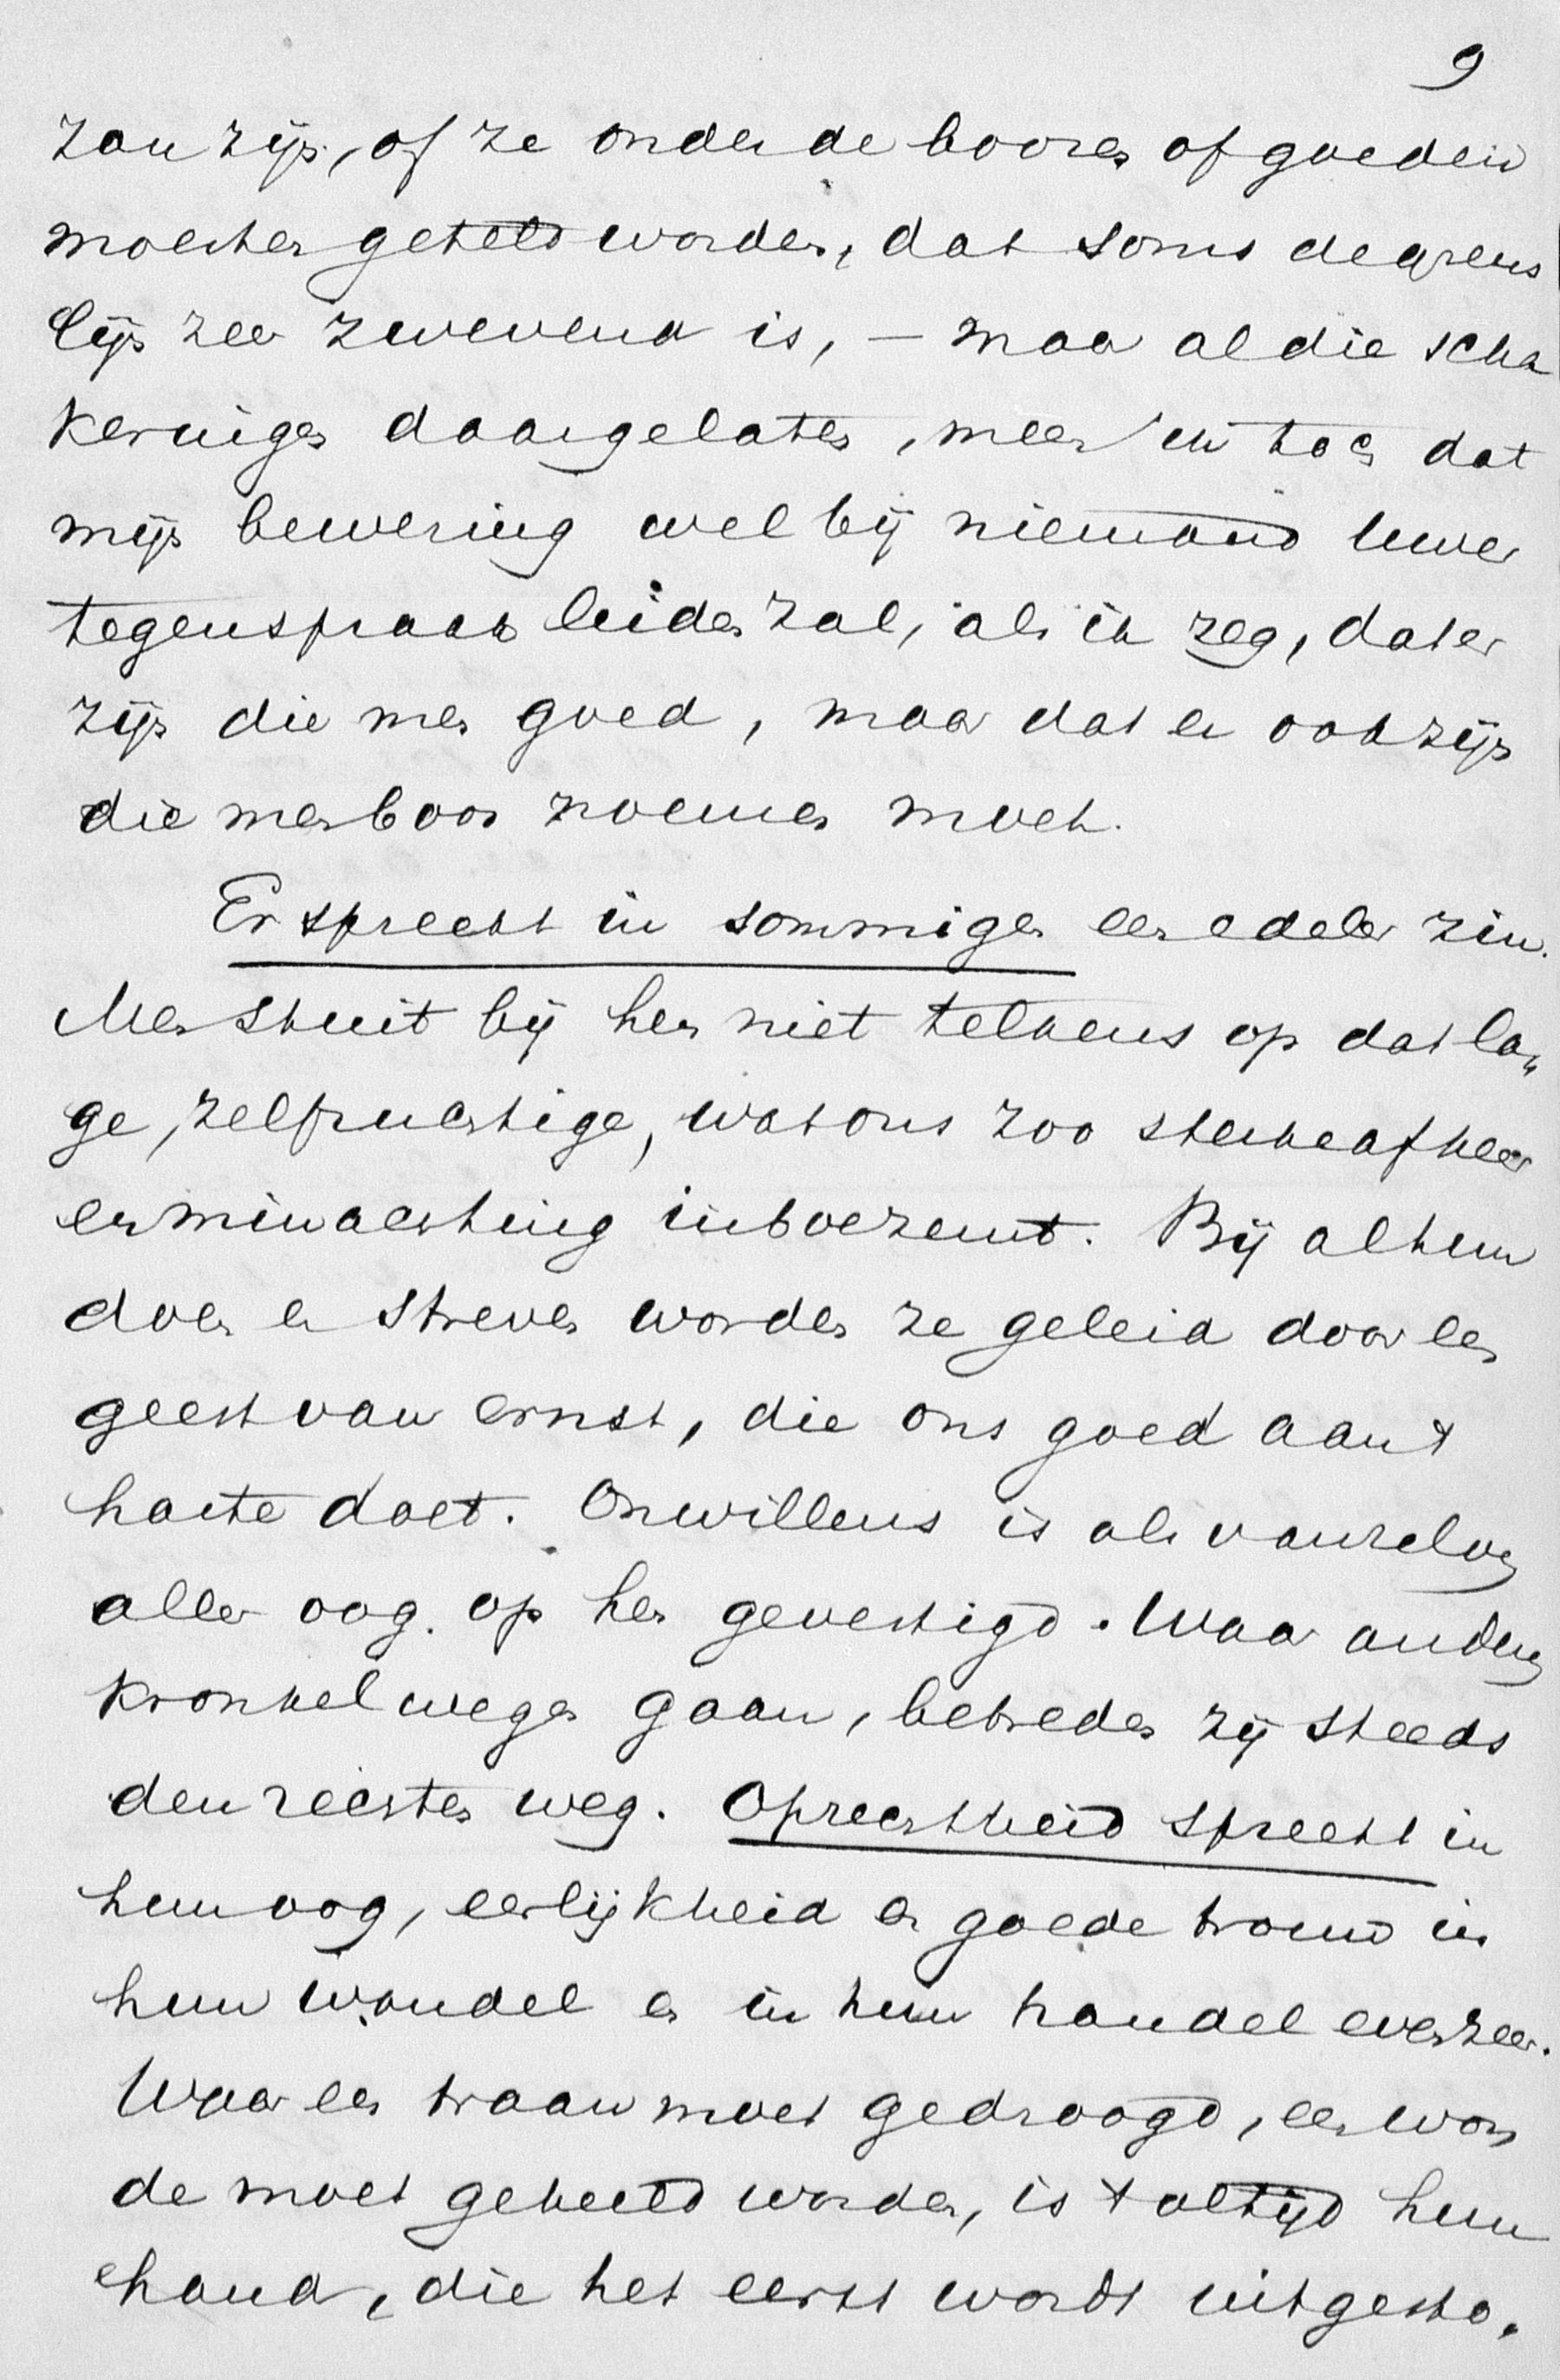 9
zou zijn, of ze onder de boozen of goeden
moesten geteld worden, dat soms de grens
lijn zeer zwevend is, – maar al die scha
keeringen daargelaten, meen ik toch dat
mijn bewering wel bij niemand uwer
tegenspraak lijden zal, als ik zeg, dat er
zijn die men goed, maar dat er ook zijn
die men boos noemen moet.
Er spreekt in sommigen een edeler zin.
Men stuit bij hen niet telkens op dat la„
ge, zelfzuchtige, wat ons zoo sterke afkeer
en minachting inboezemt. Bij al hun
doen en streven worden ze geleid door een
geest van ernst, die ons goed aan 't
harte doet. Onwillens is als vanzelven
aller oog op hen gevestigd. Waar anderen
kronkelwegen gaan, betreden zij steeds
den rechten weg. Oprechtheid spreekt in
hun oog, eerlijkheid en goede trouw in
hun wandel en in hun handel evenzeer.
Waar een traan moet gedroogd, een won
de moet geheeld worden, is 't altijd hun
hand, die het eerst wordt uitgesto„